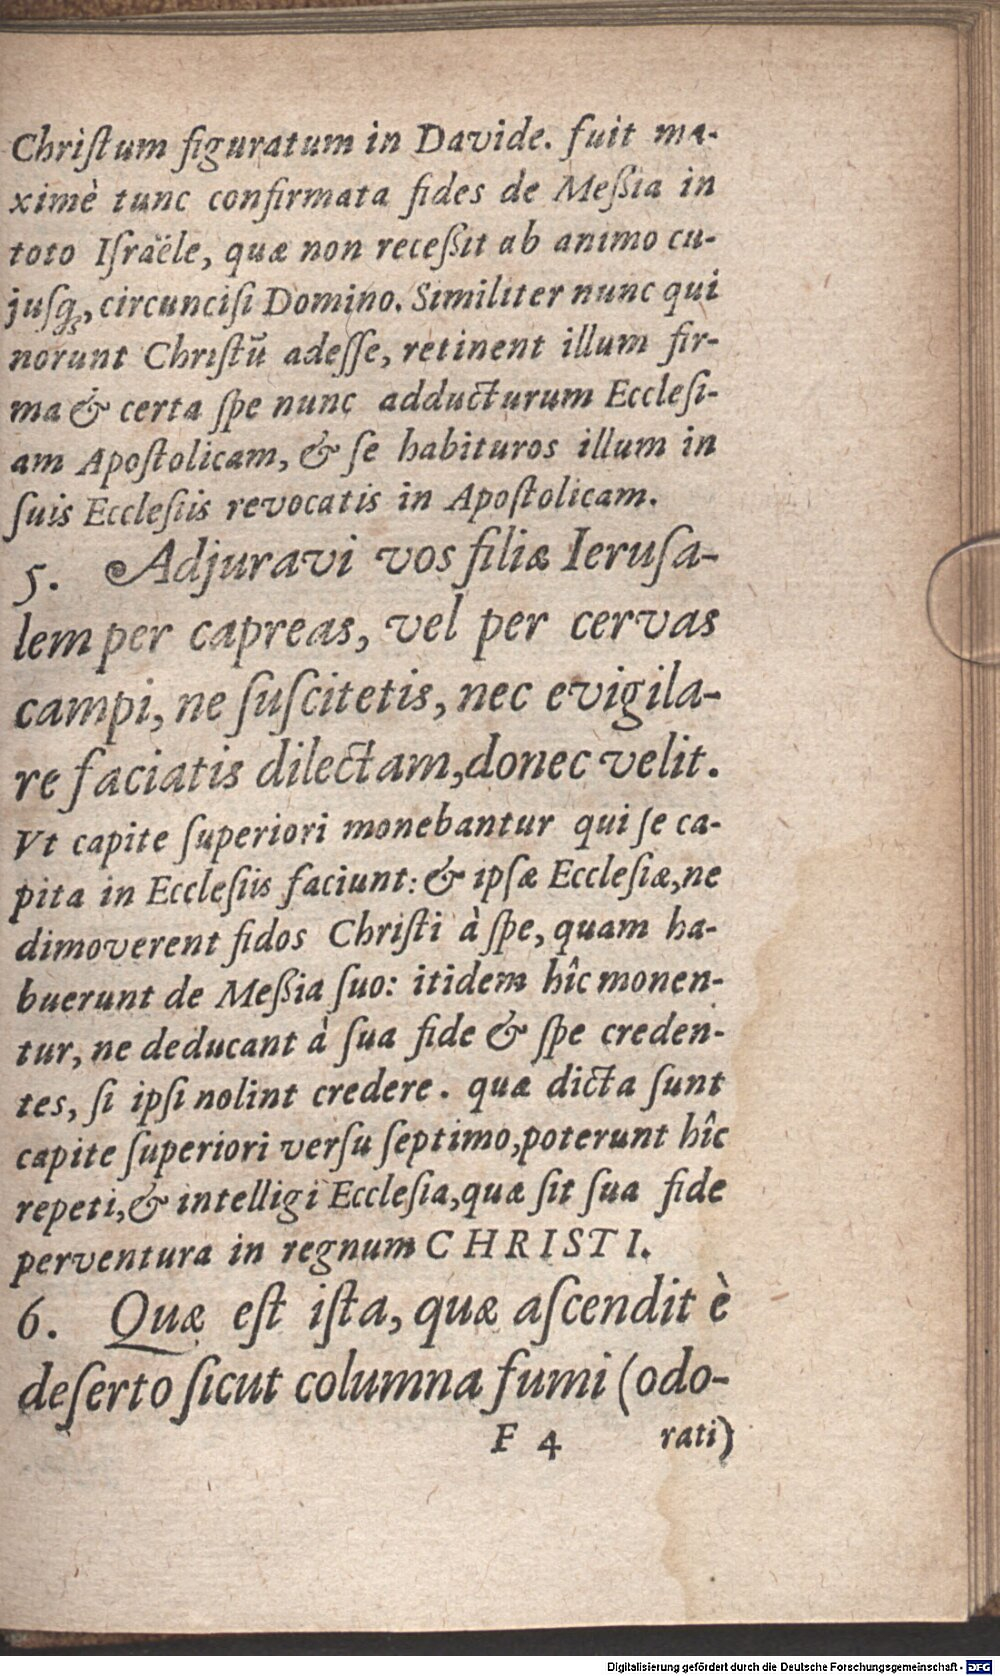 Chriſtum figuratum in Davide. fuit ma-
ximè tunc confirmata fides de Meßia in
toto Iſraële, quæ non receßit ab animo cu-
juſq́;, circunciſi Domino. Similiter nunc qui
norunt Chriſtũ adeſſe, retinent illum fir-
ma & certa ſpe nunc adducturum Eccleſi-
am Apoſtolicam, & ſe habituros illum in
ſuis Eccleſiis revocatis in Apoſtolicam.
5. Adjuravi vos filiæ Ieruſa-
lem per capreas, vel per cervas
campi, ne ſuſcitetis, nec evigila-
re faciatis dilectam, donec velit.
Vt capite ſuperiori monebantur qui ſe ca-
pita in Eccleſiis faciunt: & ipſæ Eccleſiæ, ne
dimoverent fidos Chriſti à ſpe, quam ha-
buerunt de Meßia ſuo: itidem hîc monen-
tur, ne deducant à ſua fide & ſpe creden-
tes, ſi ipſi nolint credere. quæ dicta ſunt
capite ſuperiori verſu ſeptimo, poterunt hîc
repeti, & intelligi Eccleſia, quæ ſit ſua fide
perventura in regnum CHRISTI.
6. Quæ eſt iſta, quæ aſcendit è
deſerto ſicut columna fumi (odo-
F 4 rati)
Digitalisierung gefördert durch die Deutsche Forschungsgemeinschaft - DFG